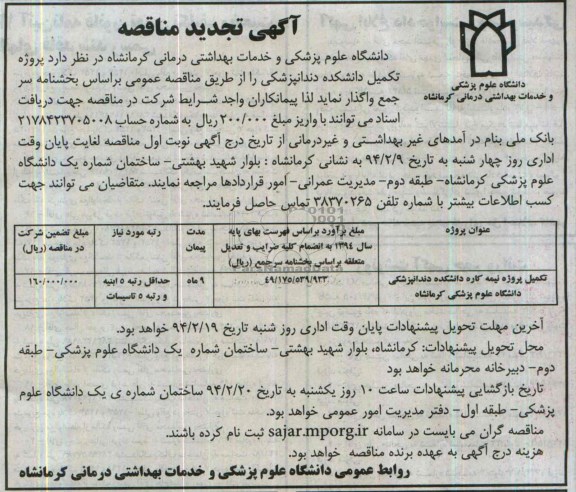 آگهی تجدید مناقصه
دانشگاه علوم پزشکی
و خدمات بهداشتی درمانی کرمانشاه
دانشگاه علوم پزشکی و خدمات بهداشتی درمانی کرمانشاه در نظر دارد پروژه
تکمیل دانشکده دندانپزشکی را از طریق مناقصه عمومی براساس بخشنامه سر
جمع واگذار نماید لذا پیمانکاران واجد شرایط شرکت در مناقصه جهت دریافت
اسناد می توانند با واریز مبلغ ۲۰۰/۰۰۰ ریال به شماره حساب ۲۱۷۸۴۲۳۷۰۵۰۰۸
بانک ملی بنام در آمدهای غیر بهداشتی و غیردرمانی از تاریخ درج آگهی نوبت اول مناقصه لغایت پایان وقت
اداری روز چهار شنبه به تاریخ ۹۴/۲/۹ به نشانی کرمانشاه : بلوار شهید بهشتی- ساختمان شماره یک دانشگاه
علوم پزشکی کرمانشاه- طبقه دوم- مدیریت عمرانی- امور قراردادها مراجعه نمایند. متقاضیان می توانند جهت
کسب اطلاعات بیشتر با شماره تلفن ۳۸۳۷۰۲۶۵ تماس حاصل فرمایند.
عنوان پروژه
مبلغ برآورد براساس فهرست بهای پایه
سال ۱۳۹۴ به انضمام کلیه ضرایب و تعدیل
متعلقه براساس بخشنامه سرجمع (ریال)
مدت
پیمان
رتبه مورد نیاز
مبلغ تضمین شرکت
در مناقصه (ریال)
تکمیل پروژه نیمه کاره دانشکده دندانپزشکی
دانشگاه علوم پزشکی کرمانشاه
۴۹/۱۷۵/۵۳۹/۹۳۳
۹ ماه
حداقل رتبه ۵ ابنیه
و رتبه ۵ تاسیسات
۱۶۰/۰۰۰/۰۰۰
آخرین مهلت تحویل پیشنهادات پایان وقت اداری روز شنبه تاریخ ۹۴/۲/۱۹ خواهد بود.
محل تحویل پیشنهادات: کرمانشاه، بلوار شهید بهشتی- ساختمان شماره یک دانشگاه علوم پزشکی- طبقه
دوم- دبیرخانه محرمانه خواهد بود
تاریخ بازگشایی پیشنهادات ساعت ۱۰ روز یکشنبه به تاریخ ۹۴/۲/۲۰ ساختمان شماره ی یک دانشگاه علوم
پزشکی- طبقه اول- دفتر مدیریت امور عمومی خواهد بود.
مناقصه گران می بایست در سامانه sajar.mporg.ir ثبت نام کرده باشند.
هزینه درج آگهی به عهده برنده مناقصه خواهد بود.
روابط عمومی دانشگاه علوم پزشکی و خدمات بهداشتی درمانی کرمانشاه